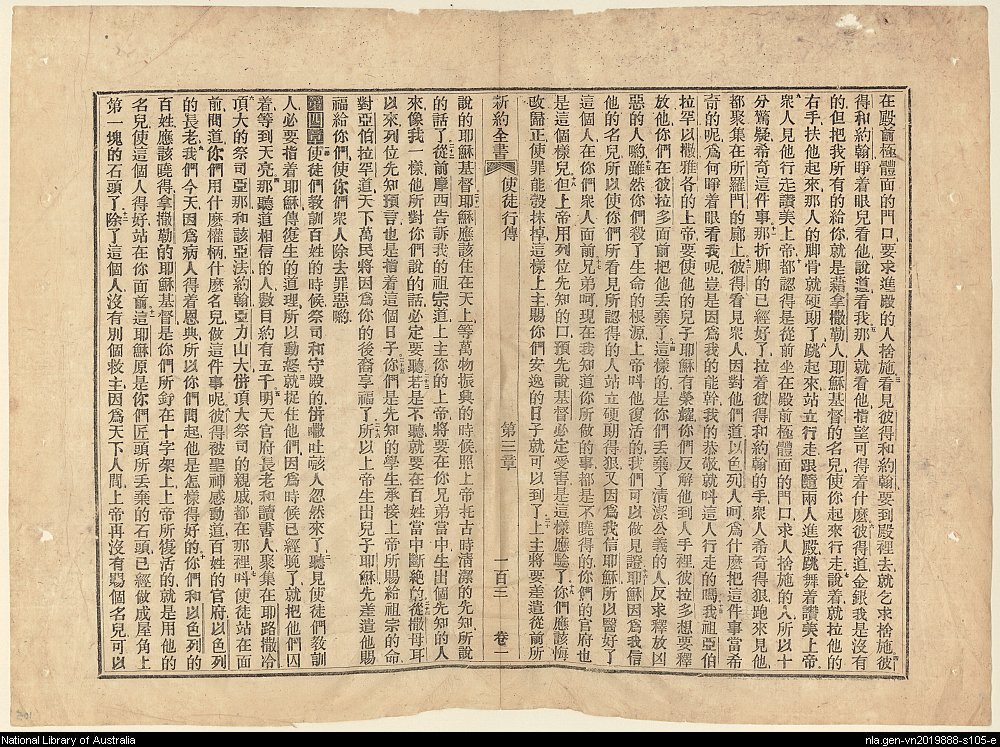 在殿前極體面的門口要求進殿的人捨施看見彼得和約翰要到殿裡去就乞求捨施彼
得和約翰睜着眼兒看他說道看我那人就看他指望可得着什麼彼得道金銀我是沒有
的但把我所有的給你就是藉拿撒勒人耶穌基督的名兒使你起來行走說着就拉他的
右手扶他起來那人的脚骨就硬朗了跳起來站立行走跟隨兩人進殿跳舞着讚美上帝
衆人見他行走讚美上帝都認得是從前坐在殿前極體面的門口求人捨施的人所以十
分驚疑希奇這件事那折脚的已經好了拉着彼得和約翰的手衆人希奇得狠跑來見他
都聚集在所羅門的廊上彼得看見衆人因對他們道以色列人呵爲什麼把這件事當希
奇的呢爲何睜着眼看我呢豈是因爲我的能幹我的恭敬就呌這人行走的嗎我祖亞伯
拉罕以撒雅各的上帝要使他的兒子耶穌有榮耀你們反解他到人手裡彼拉多想要釋
放他你們在彼拉多面前把他丢棄了這樣的是你們丢棄了清潔公義的人反求釋放凶
惡的人喲雖然你們殺了生命的根源上帝呌他復活的我們可以做見證耶穌因爲我信
他的名兒所以使你們所看見所認得的人站立硬朗得狠又因爲我信耶穌所以醫好了
這個人在你們衆人面前兄弟呵現在我知道你所做的事都是不曉得的你們的官府也
是這個樣兒但上帝用列位先知的口預先說基督必定受害是這樣應驗了你們應該悔
改歸正使罪能彀抹掉這樣上主賜你們安逸的日子就可以到了上主將要差遣從前所
新約全書 使徒行傳 第三章 一百三 卷一
說的耶穌基督耶穌應該住在天上等萬物振興的時候照上帝托古時清潔的先知所說
的話了從前摩西告訴我的祖宗道上主你的上帝將要在你兄弟當中生出個先知的人
來像我一樣他所對你們說的話必定要聽若是不聽就要在百姓當中斷絕的從撒母耳
以來列位先知預言也是指着這個日子你們是先知的學生承接上帝所賜給祖宗的命
對亞伯拉罕道天下萬民將因爲你的後裔享福了所以上帝生出兒子耶穌先差遣他賜
福給你們使你們衆人除去罪惡喲
第四章使徒們教訓百姓的時候祭司和守殿的併撒吐該人忽然來了聽見使徒們教訓
人必要指着耶穌傳復生的道理所以動怒就捉住他們因爲時候已經晚了就把他們囚
着等到天亮那聽道相信的人數目約有五千明天官府長老和讀書人聚集在耶路撒冷
頂大的祭司亞那和該亞法約翰亞力山大併頂大祭司的親戚都在那裡呌使徒站在面
前問道你們用什麼權柄什麼名兒做這件事呢彼得被聖神感動道百姓的官府以色列
的長老我們今天因爲病人得着恩典所以你們問起他是怎樣得好的你們和以色列的
百姓應該曉得拿撒勒的耶穌基督是你們所釘在十字架上上帝所復活的就是用他的
名兒使這個人得好站在你面前這耶穌原是你們匠頭所丢棄的石頭已經做成屋角上
第一塊的石頭了除了這個人沒有別個救主因爲天下人間上帝再沒有賜個名兒可以
National Library of Australia
nla.gen-vn2019888-s105-e